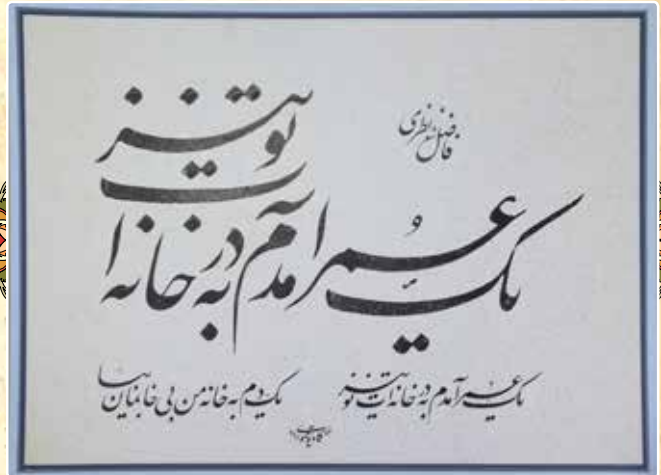 فاضل نظری
یک عمر آمدم به در خانه‌ات تو نیز
یک عمر آمدم به در خانه‌ات تو نیز
یک دم به خانه من بی خانمان بیا